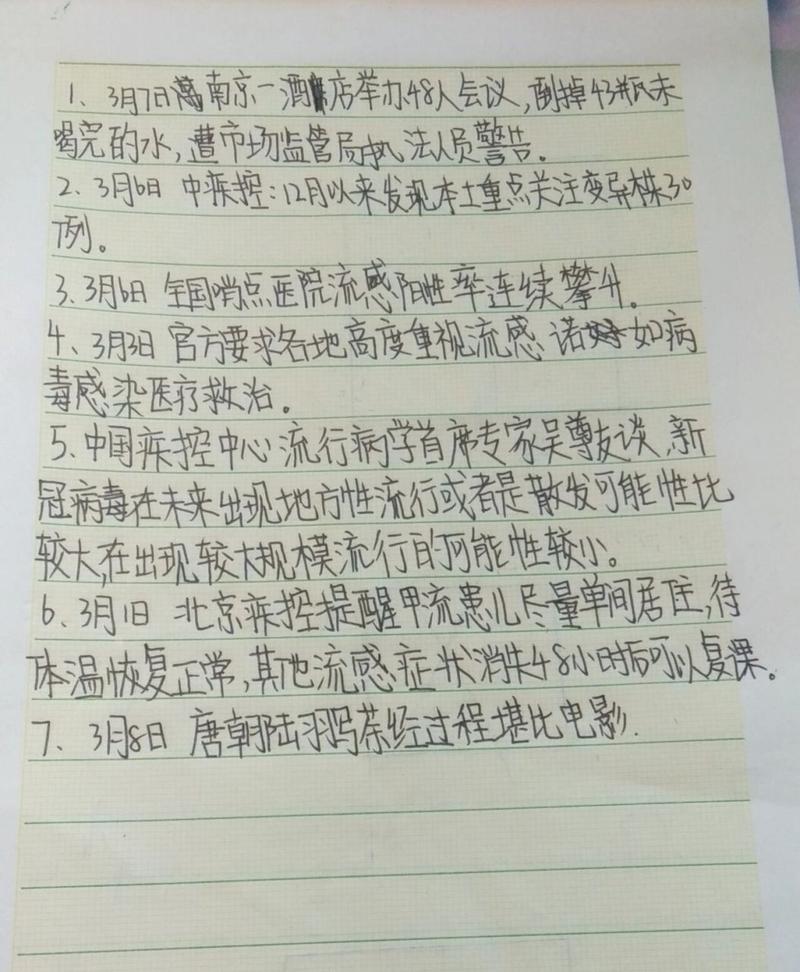 1、3月7日南京一酒店举办48人会议,倒掉43瓶未
喝完的水,遭市场监管局执法人员警告。
2、3月6日 中疾控:12月以来发现本土重点关注变异株30
例。
3、3月6日 全国哨点医院流感阳性率连续攀升。
4、3月3日 官方要求各地高度重视流感 诺如病
毒感染医疗救治。
5、中国疾控中心流行病学首席专家吴尊友谈,新
冠病毒在未来出现地方性流行或者是散发可能性比
较大,在出现较大规模流行的可能性较小。
6、3月1日 北京疾控提醒甲流患儿尽量单间居住,待
体温恢复正常,其他流感症状消失48小时后可以复课。
7、3月8日 唐朝陆羽写茶经过程堪比电影.